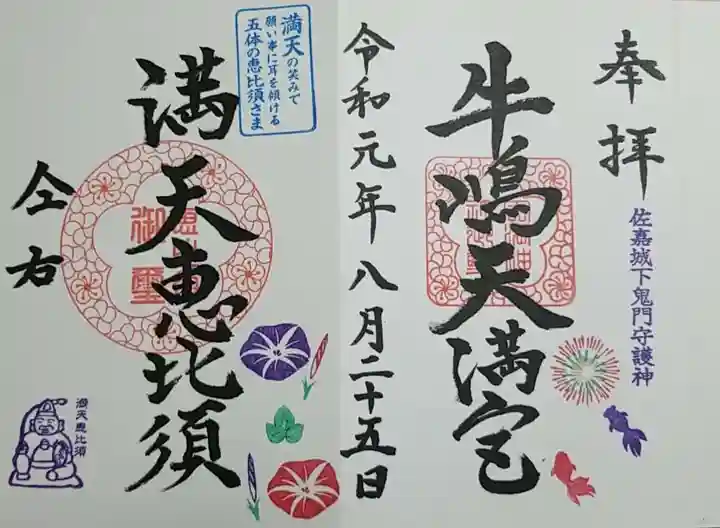 奉拝
佐嘉城下鬼門守護神
牛嶋天満宮
令和元年八月二十五日
満天の笑みで
願い事に耳を傾ける
五体の恵比須さま
満天恵比須
仝右
御璽
満天恵比須